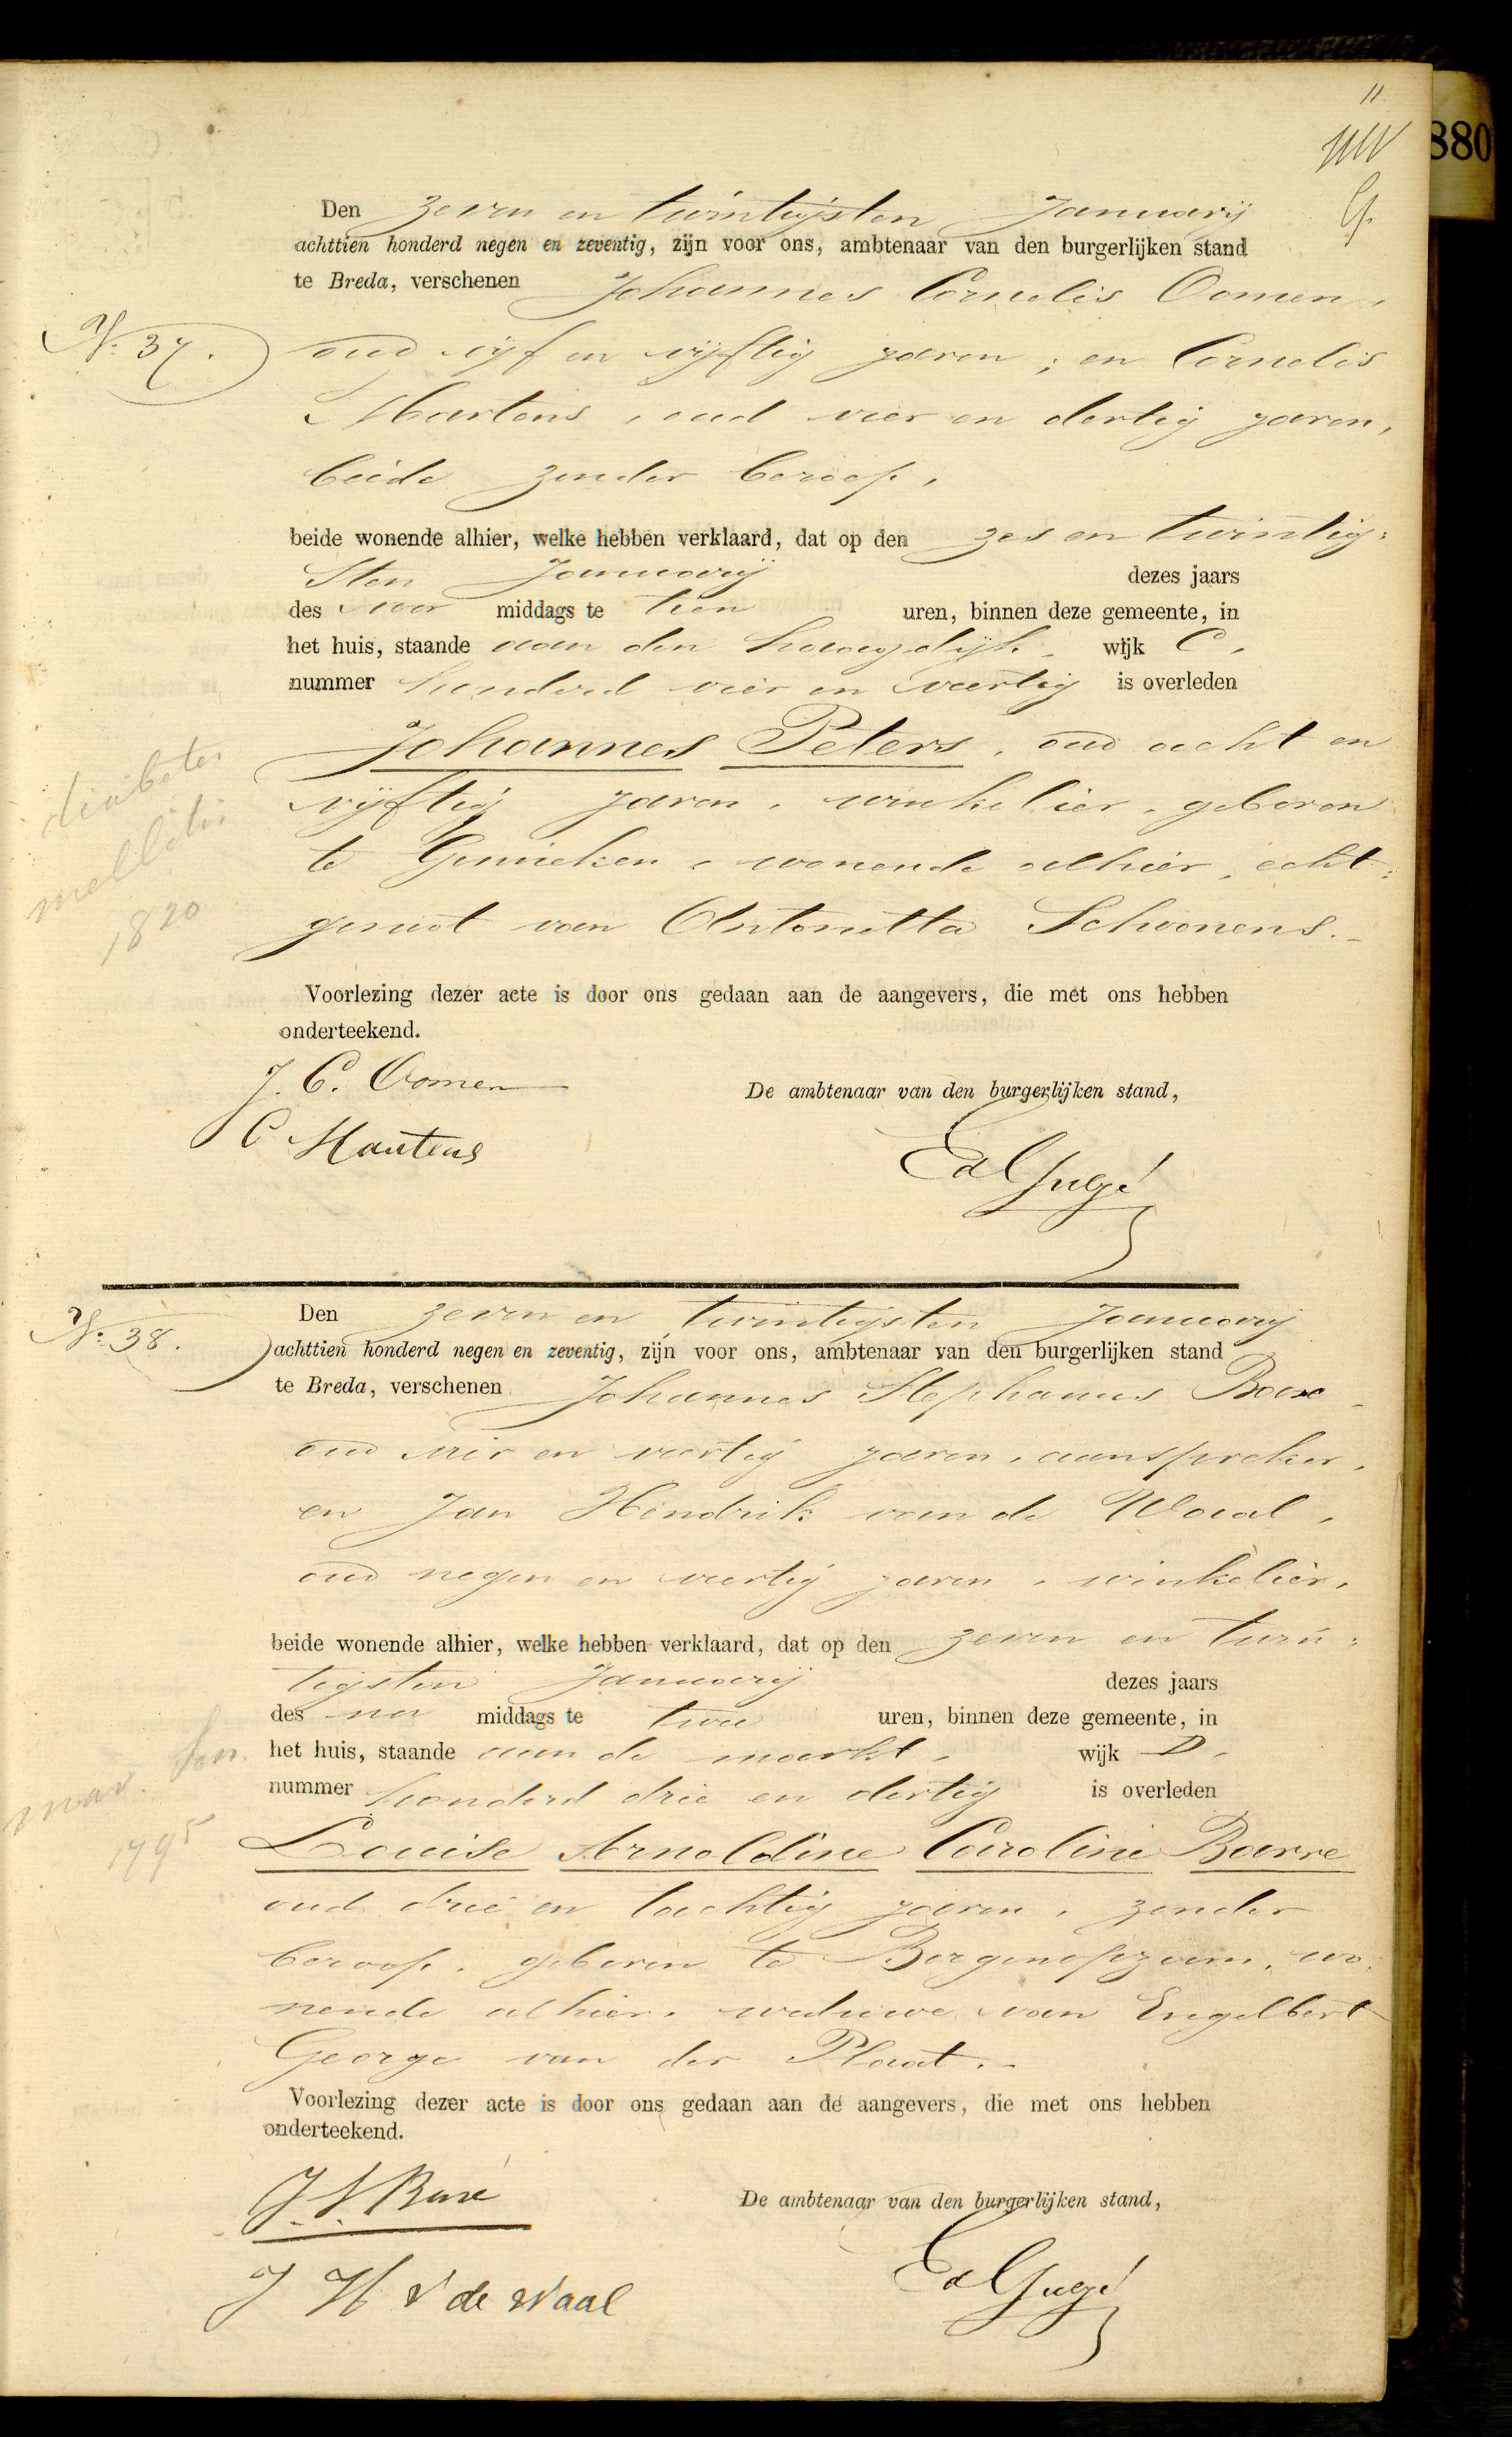 11
880
Den zeven en twintigsten Januarij
achttien honderd negen en zeventig, zijn voor ons, ambtenaar van den burgerlijken stand
te Breda, verschenen Johannes Cornelis Oomen,
No. 37.
oud vijf en vijftig jaren, en Cornelis
Martens, oud vier en dertig jaren,
beide zonder beroep,
beide wonende alhier, welke hebben verklaard, dat op den zes en twintig-
sten Januarij dezes jaars
des voor middags te tien uren, binnen deze gemeente, in
het huis, staande aan den haagdijk, wijk C,
nummer honderd vier en veertig is overleden
Johannes Peters, oud acht en
vijftig jaren, winkelier, geboren
te Ginneken, wonende alhier, echt-
genoot van Antonetta Schoonens.
diabetes
mellitis
1820
Voorlezing dezer acte is door ons gedaan aan de aangevers, die met ons hebben
onderteekend.
J. C. Oomen
De ambtenaar van den burgerlijken stand,
C Martens
No. 38.
Den zeven en twintigsten Januarij
achttien honderd negen en zeventig, zijn voor ons, ambtenaar van den burgerlijken stand
te Breda, verschenen Johannes Stephanus
oud vier en veertig jaren, aanspreker,
en Jan Hendrik van de Waal,
oud negen en veertig jaren, winkelier,
beide wonende alhier, welke hebben verklaard, dat op den zeven en twin-
tigsten Januarij dezes jaars
des na middags te twee uren, binnen deze gemeente, in
het huis, staande aan de markt, wijk D,
nummer honderd drie en dertig is overleden
mar. sen.
1795
Louise Arnoldine Caroline Barre
oud drie en tachtig jaren, zonder
beroep, geboren te Bergenopzoom, wo-
nende alhier, weduwe van Engelbert
George van der Plaat.
Voorlezing dezer acte is door ons gedaan aan de aangevers, die met ons hebben
onderteekend.
De ambtenaar van den burgerlijken stand,
J H v de Waal